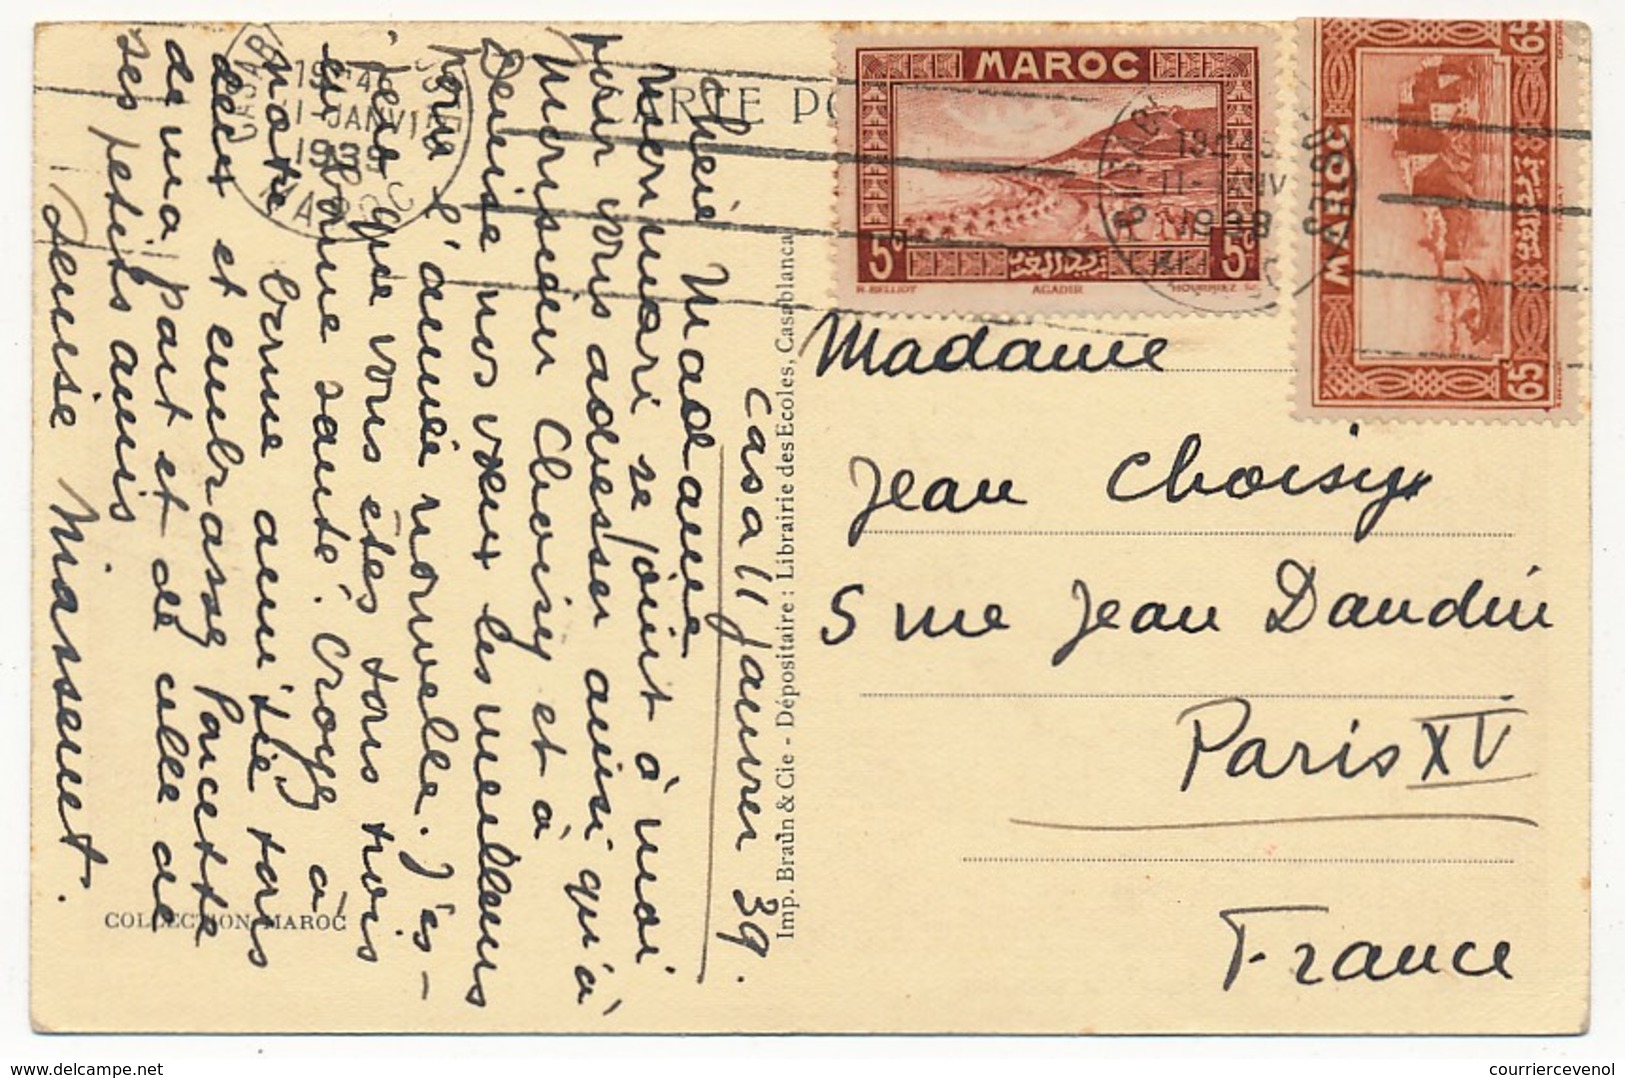 Casa 11 janvier 39.
Chère Madame
Mon mari se joint à moi
pour vous adresser ainsi qu'à
Monsieur Choisy et à
Denise nos vœux les meilleurs
pour l'année nouvelle. J'es-
père que vous êtes tous trois
en bonne santé. Croyez à
notre bonne amitié tous
deux et embrassez Poucette
de ma part et de celle de
ses petits amis
Denise Massenet.
COLLECTION MAROC
Imp. Braun & Cie - Dépositaire : Librairie des Ecoles, Casablanca
RTE PO
CASABL
11-JANV
1939
MAROC
MAROC
5c 5c
R. BELLIOT AGADIR
11- JANV
MAROC
65c 65c
Madame
Jean Choisy
5 rue Jean Daudin
Paris XV
France
courriercevenol